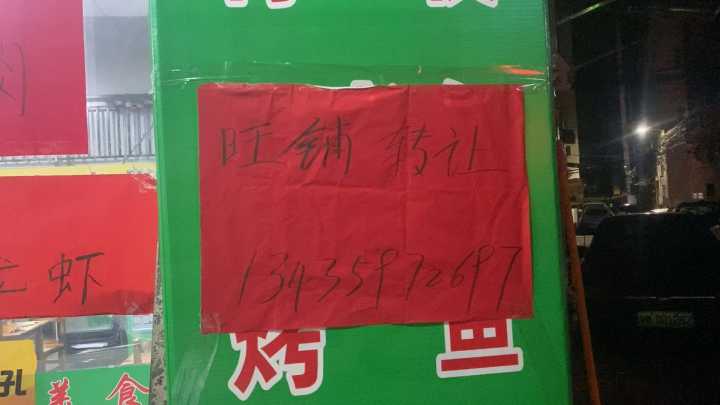 旺铺转让
13435972697
烤鱼
虾
美食